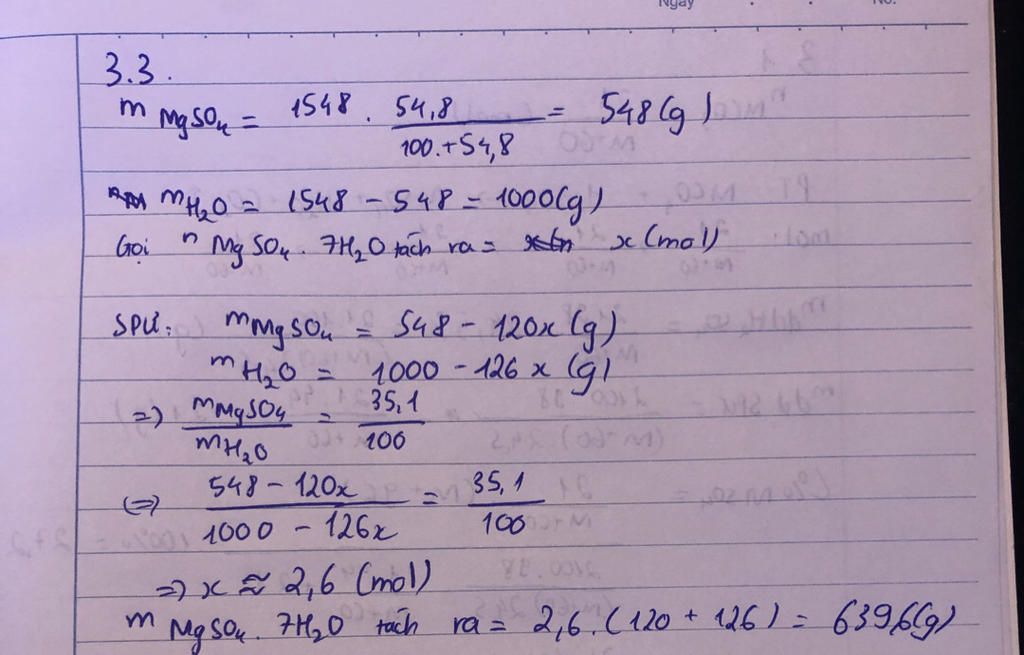 Ngày . . No.
3.3.
m MgSO₄ = 1548 . 54,8 / 100 + 54,8 = 548 (g)
m H₂O = 1548 - 548 = 1000 (g)
Gọi n MgSO₄ . 7H₂O tách ra = x (mol)
SPƯ: m MgSO₄ = 548 - 120x (g)
m H₂O = 1000 - 126x (g)
=> m MgSO₄ / m H₂O = 35,1 / 100
<=> 548 - 120x / 1000 - 126x = 35,1 / 100
=> x ≈ 2,6 (mol)
m MgSO₄ . 7H₂O tách ra = 2,6 . (120 + 126) = 639,6 (g)